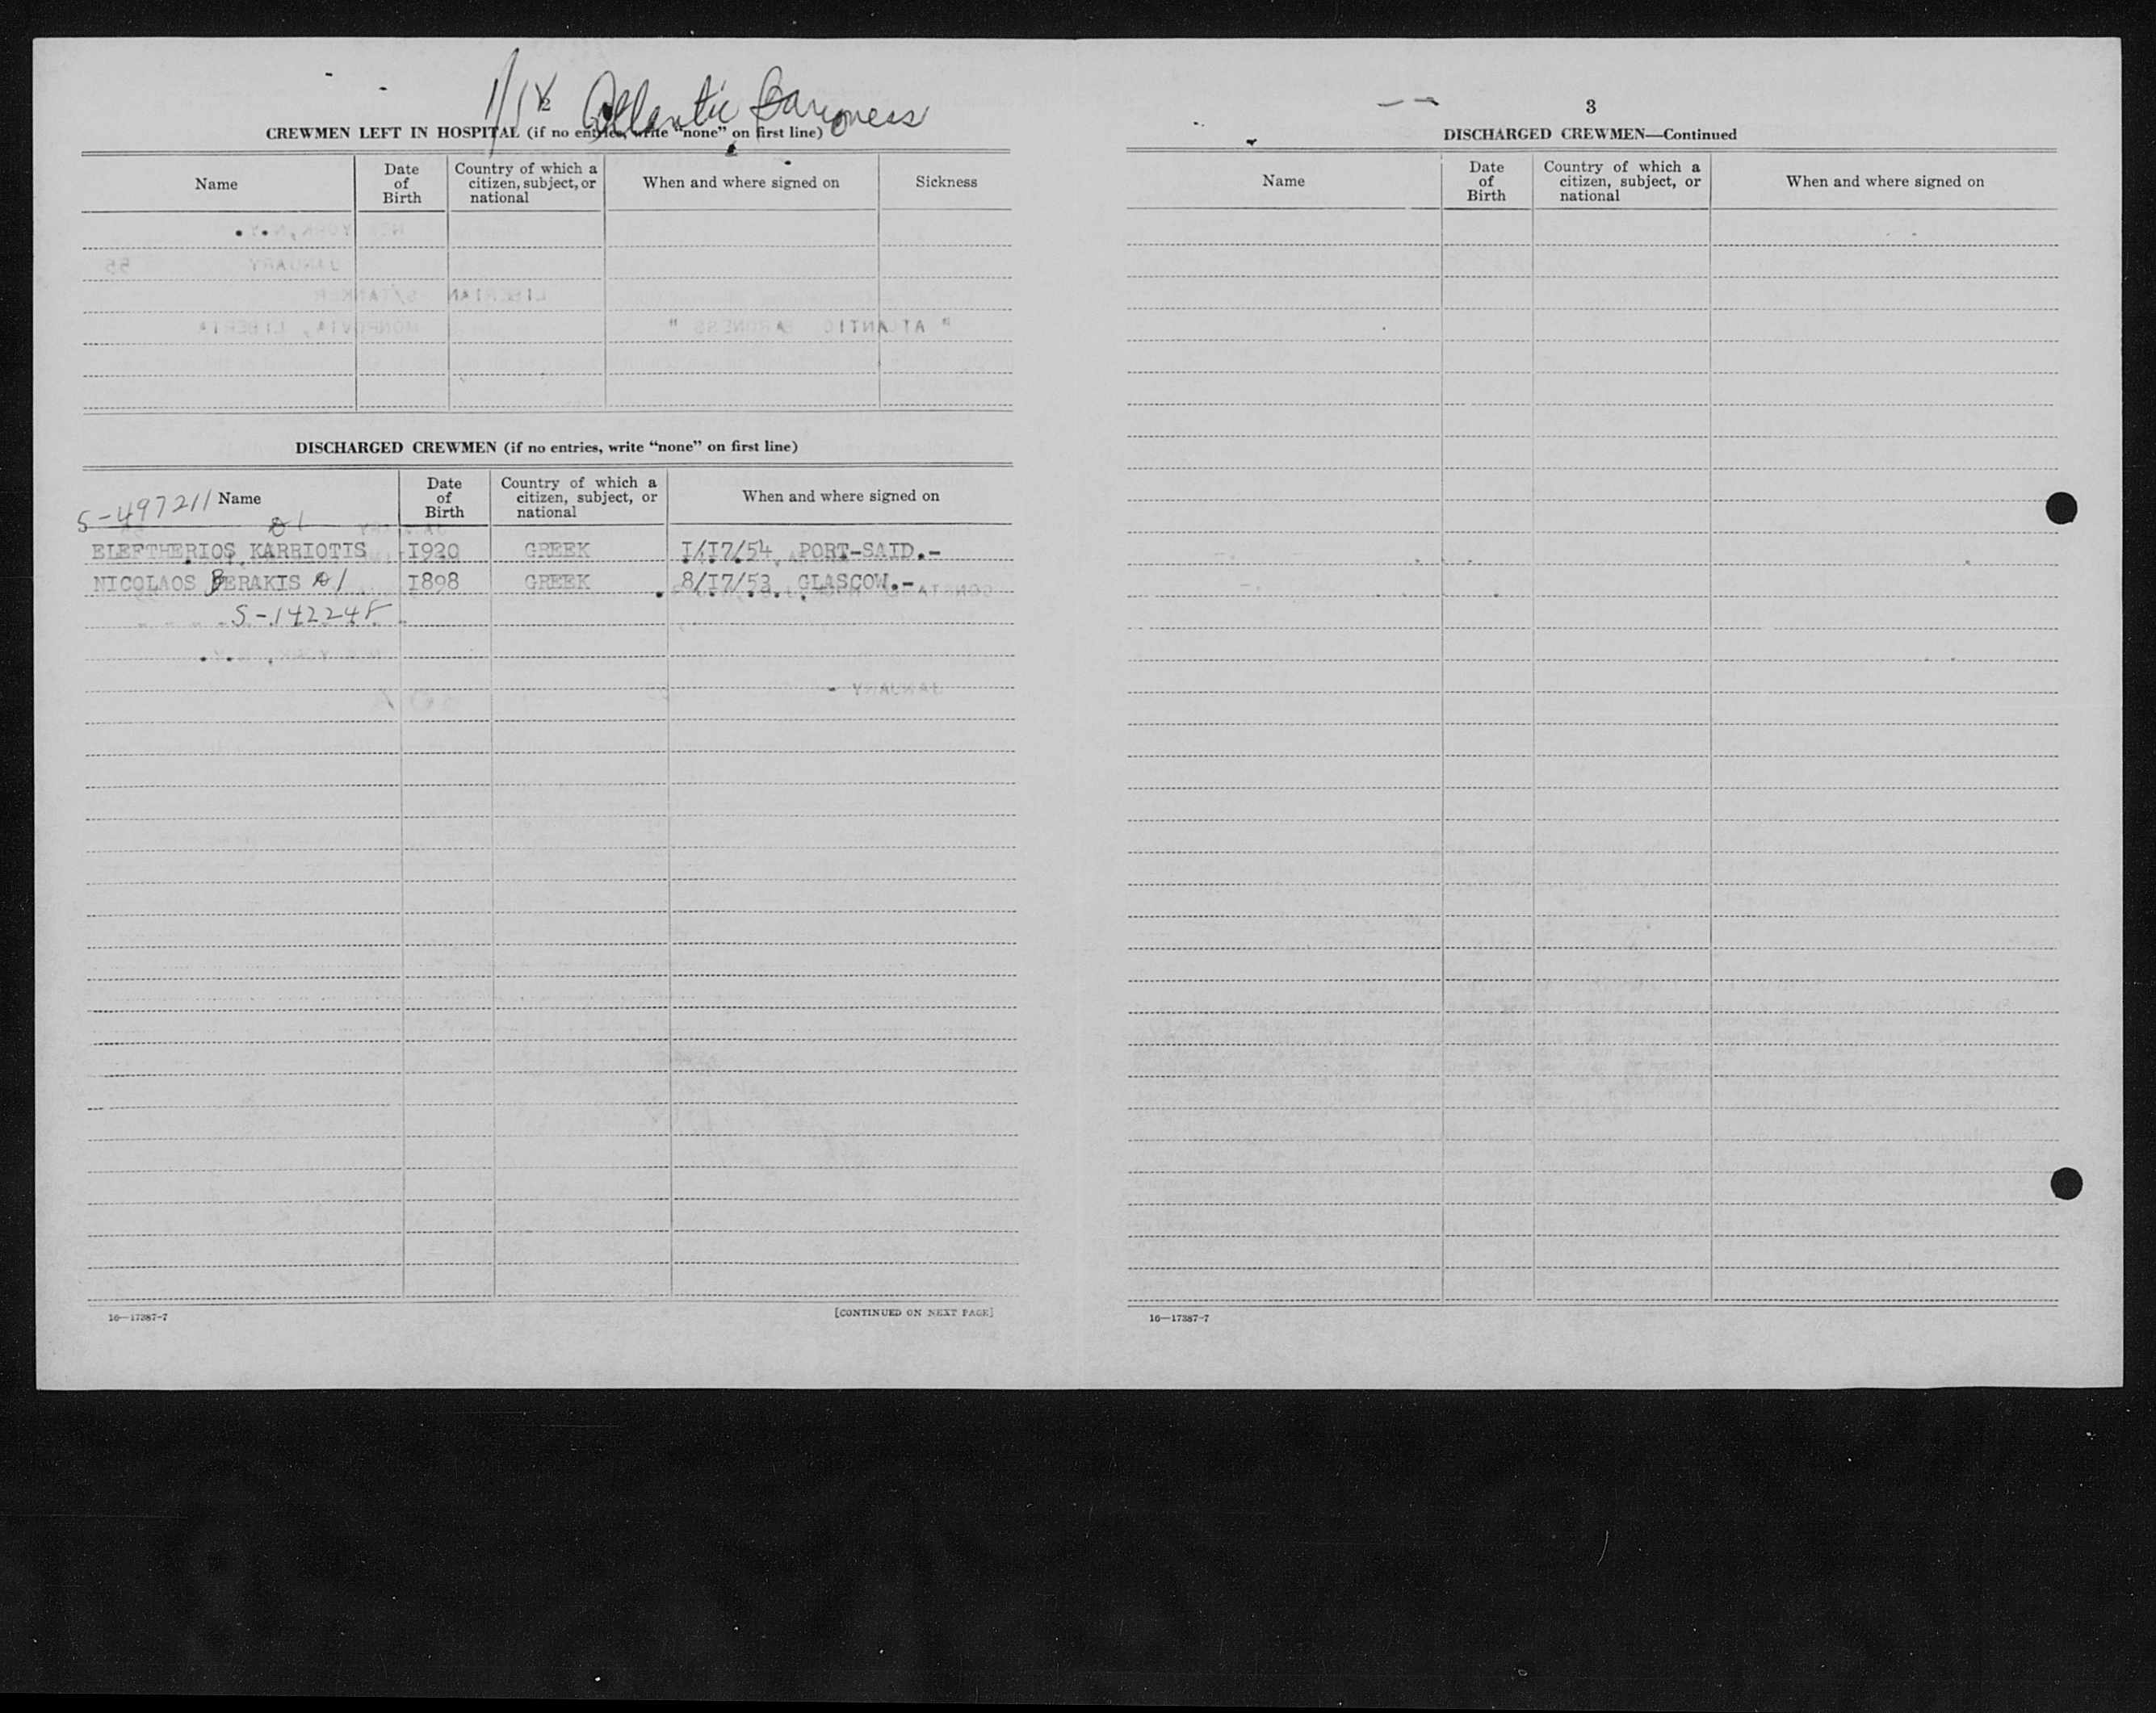 Atlantic Baroness
2
CREWMEN LEFT IN HOSPITAL (if no entries, write "none" on first line)
Name
Date of Birth
Country of which a citizen, subject, or national
When and where signed on
Sickness
DISCHARGED CREWMEN (if no entries, write "none" on first line)
S-497211
Name
Date of Birth
Country of which a citizen, subject, or national
When and where signed on
ELEFTHERIOS KARRIOTIS 1920 GREEK I/I7/54 PORT-SAID.-
NICOLAOS BERAKIS I898 GREEK 8/I7/53 GLASCOW.-
S-142248
16—17387-7
[CONTINUED ON NEXT PAGE]
3
DISCHARGED CREWMEN—Continued
Name
Date of Birth
Country of which a citizen, subject, or national
When and where signed on
16—17387-7